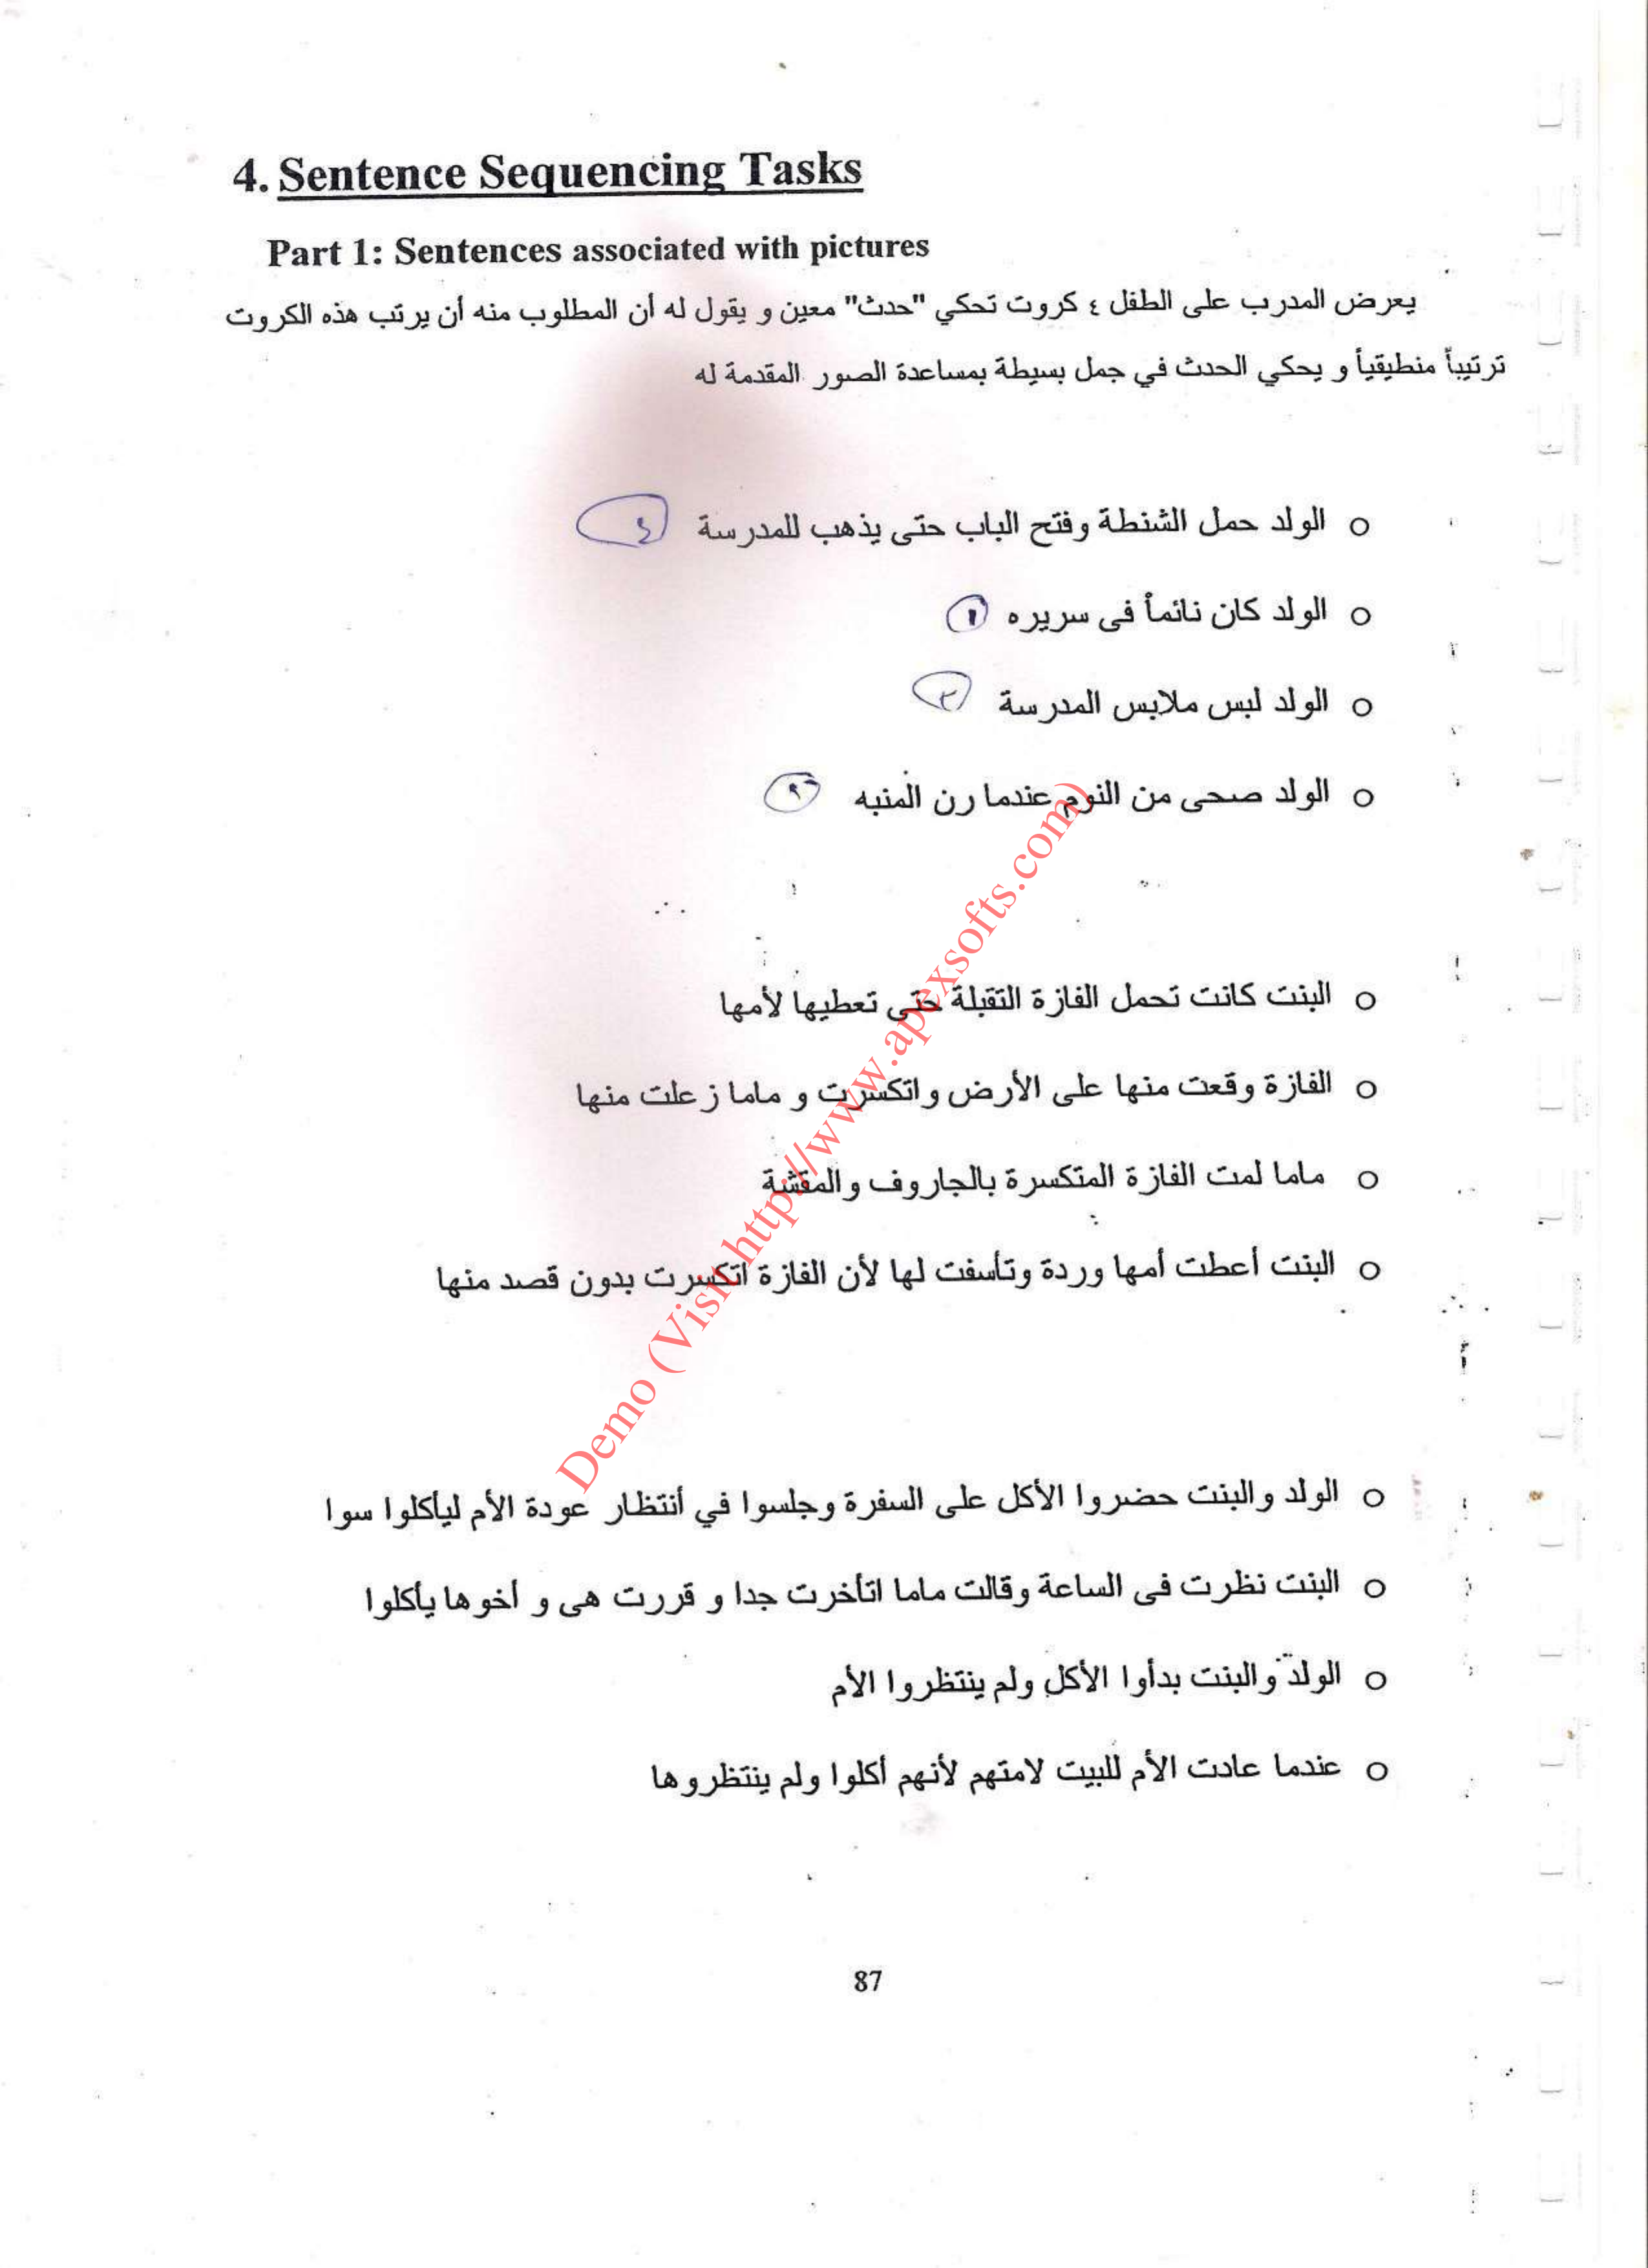 4. Sentence Sequencing Tasks
Part 1: Sentences associated with pictures
يعرض المدرب على الطفل ٤ كروت تحكي "حدث" معين و يقول له أن المطلوب منه أن يرتب هذه الكروت
ترتيباً منطيقياً و يحكي الحدث في جمل بسيطة بمساعدة الصور المقدمة له
o الولد حمل الشنطة وفتح الباب حتى يذهب للمدرسة ٤
o الولد كان نائماً فى سريره ١
o الولد لبس ملابس المدرسة
o الولد صحى من النوم عندما رن المنبه
o البنت كانت تحمل الفازة التقيلة حتى تعطيها لأمها
o الفازة وقعت منها على الأرض واتكسرت و ماما زعلت منها
o ماما لمت الفازة المتكسرة بالجاروف والمقشة
o البنت أعطت أمها وردة وتأسفت لها لأن الفازة اتكسرت بدون قصد منها
o الولد والبنت حضروا الأكل على السفرة وجلسوا في أنتظار عودة الأم ليأكلوا سوا
o البنت نظرت فى الساعة وقالت ماما اتأخرت جدا و قررت هى و أخوها يأكلوا
o الولد والبنت بدأوا الأكل ولم ينتظروا الأم
o عندما عادت الأم للبيت لامتهم لأنهم أكلوا ولم ينتظروها
Demo (Visit http://www.apexsofts.com)
87